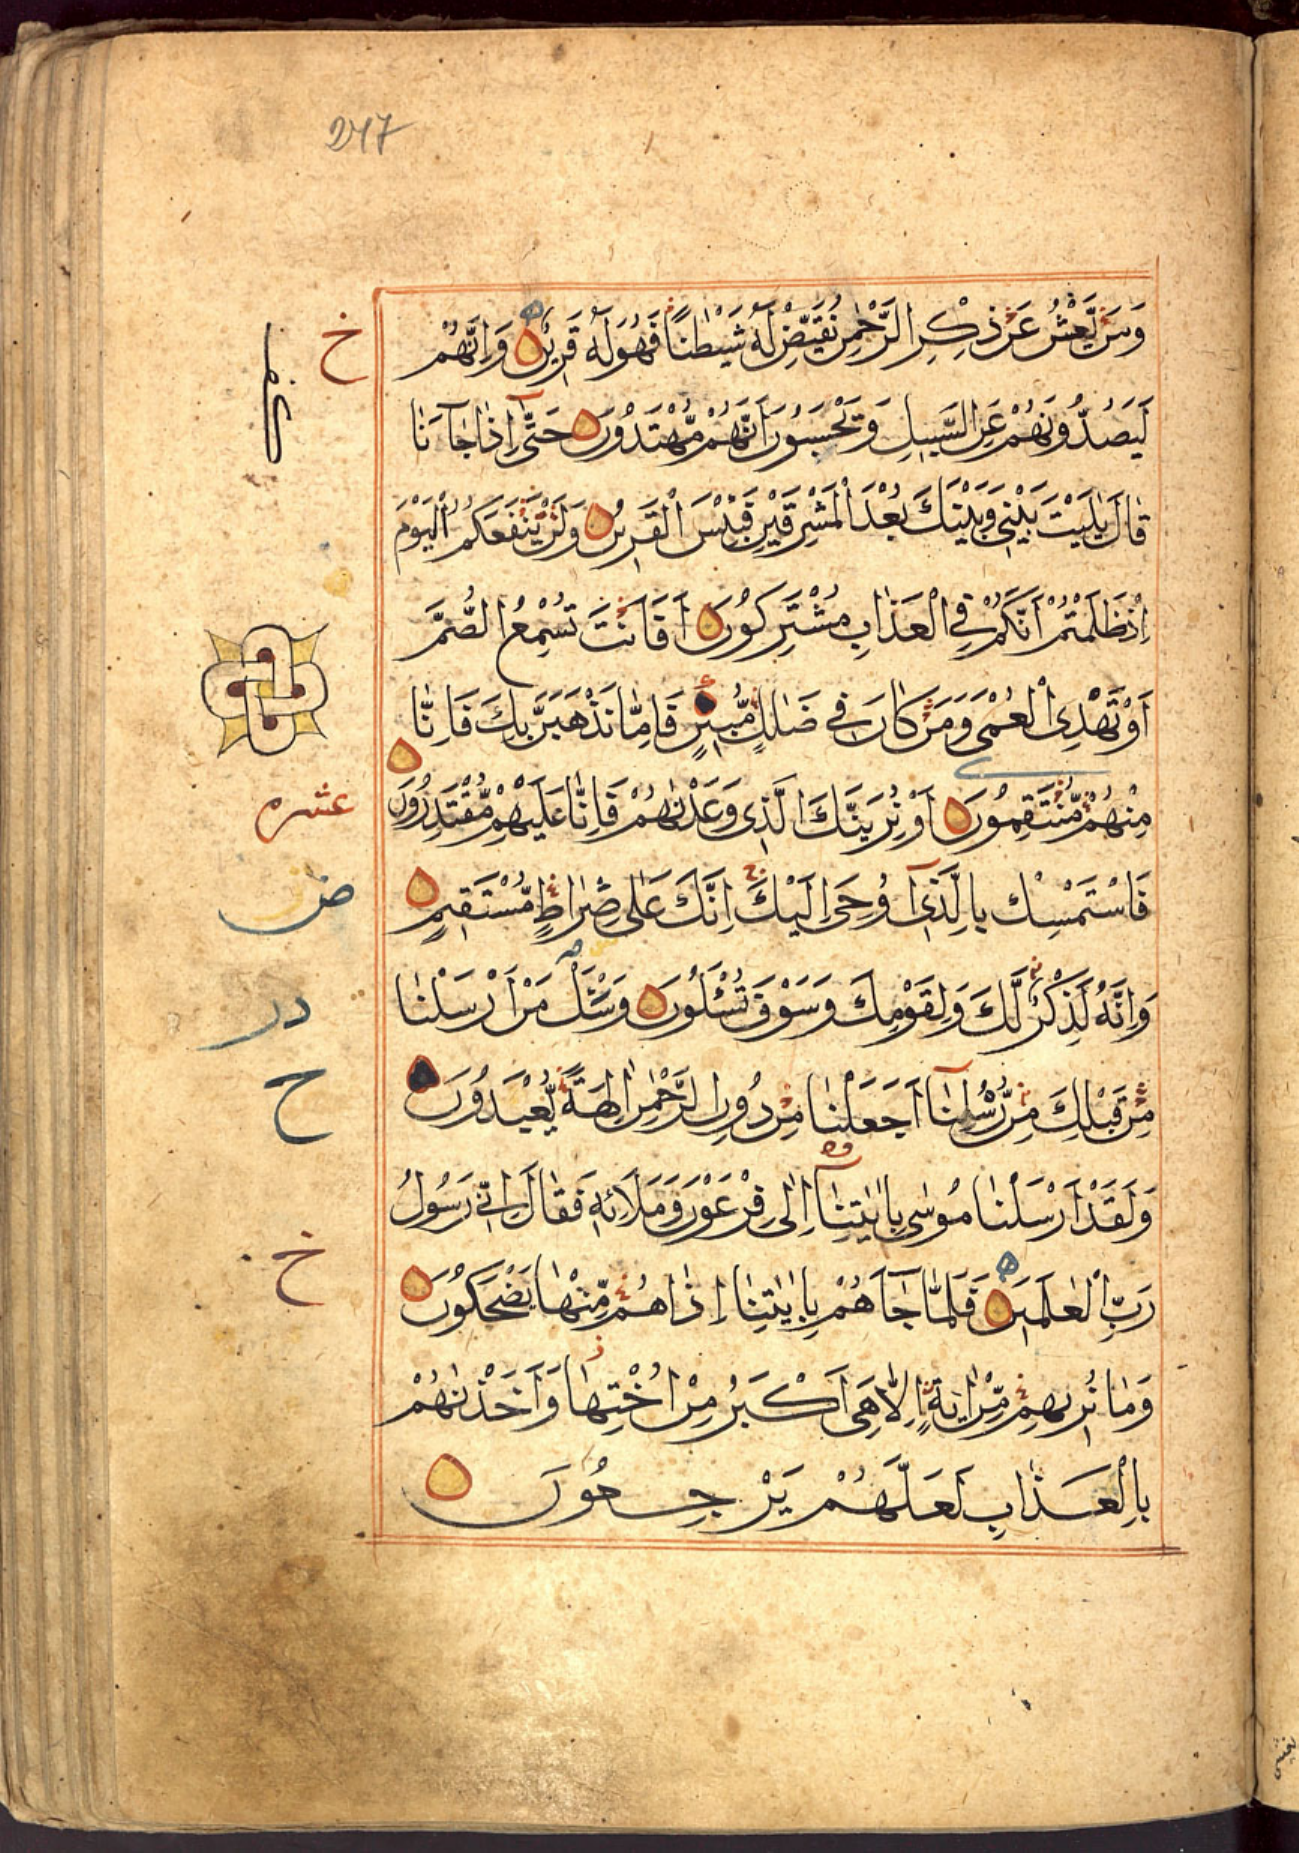 247
وَمَنْ يَّعْشُ عَنْ ذِكْرِ الرَّحْمٰنِ نُقَيِّضْ لَهٗ شَيْطٰنًا فَهُوَ لَهٗ قَرِيْنٌ وَاِنَّهُمْ
خ
لَيَصُدُّوْنَهُمْ عَنِ السَّبِيْلِ وَيَحْسَبُوْنَ اَنَّهُمْ مُّهْتَدُوْنَ حَتّٰٓى اِذَا جَآءَنَا
قَالَ يٰلَيْتَ بَيْنِيْ وَبَيْنَكَ بُعْدَ الْمَشْرِقَيْنِ فَبِئْسَ الْقَرِيْنُ وَلَنْ يَّنْفَعَكُمُ الْيَوْمَ
اِذْ ظَلَمْتُمْ اَنَّكُمْ فِي الْعَذَابِ مُشْتَرِكُوْنَ اَفَاَنْتَ تُسْمِعُ الصُّمَّ
اَوْ تَهْدِى الْعُمْىَ وَمَنْ كَانَ فِيْ ضَلٰلٍ مُّبِيْنٍ فَاِمَّا نَذْهَبَنَّ بِكَ فَاِنَّا
مِنْهُمْ مُّنْتَقِمُوْنَ اَوْ نُرِيَنَّكَ الَّذِيْ وَعَدْنٰهُمْ فَاِنَّا عَلَيْهِمْ مُّقْتَدِرُوْنَ
عشره
فَاسْتَمْسِكْ بِالَّذِيْٓ اُوْحِيَ اِلَيْكَ اِنَّكَ عَلٰى صِرَاطٍ مُّسْتَقِيْمٍ
وَاِنَّهٗ لَذِكْرٌ لَّكَ وَلِقَوْمِكَ وَسَوْفَ تُسْـَٔلُوْنَ وَسْـَٔلْ مَنْ اَرْسَلْنَا
مِنْ قَبْلِكَ مِنْ رُّسُلِنَآ اَجَعَلْنَا مِنْ دُوْنِ الرَّحْمٰنِ اٰلِهَةً يُّعْبَدُوْنَ
ح
وَلَقَدْ اَرْسَلْنَا مُوْسٰى بِاٰيٰتِنَآ اِلٰى فِرْعَوْنَ وَمَلَا۟ئِهٖ فَقَالَ اِنِّيْ رَسُوْلُ
رَبِّ الْعٰلَمِيْنَ فَلَمَّا جَآءَهُمْ بِاٰيٰتِنَا اِذَا هُمْ مِّنْهَا يَضْحَكُوْنَ
خ
وَمَا نُرِيْهِمْ مِّنْ اٰيَةٍ اِلَّا هِيَ اَكْبَرُ مِنْ اُخْتِهَا وَاَخَذْنٰهُمْ
بِالْعَذَابِ لَعَلَّهُمْ يَرْجِعُوْنَ